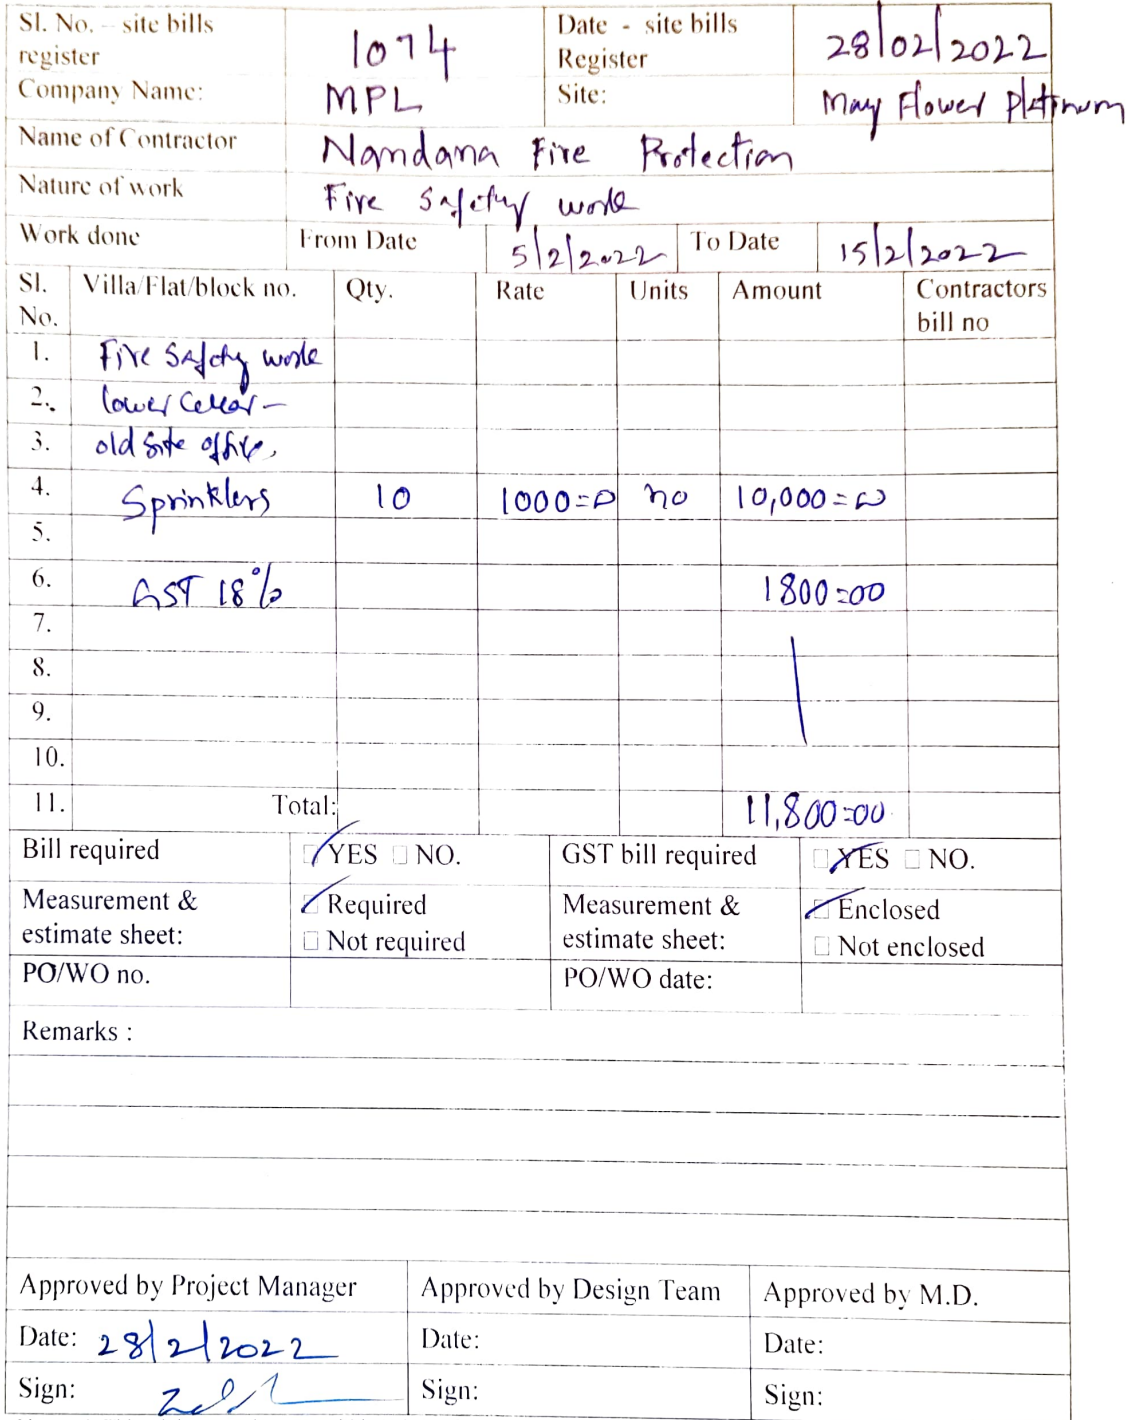 Sl. No. – site bills register 1074 Date - site bills Register 28/02/2022
Company Name: MPL Site: May Flower Platinum
Name of Contractor Nandana Fire Protection
Nature of work Fire Safety work
Work done From Date 5/2/2022 To Date 15/2/2022
Sl. No. Villa/Flat/block no. Qty. Rate Units Amount Contractors bill no
1. Fire Safety work
2. lower Cellar -
3. old site office.
4. Sprinklers 10 1000=00 no 10,000=00
5.
6. GST 18% 1800=00
7.
8.
9.
10.
11. Total: 11,800=00
Bill required YES NO. GST bill required YES NO.
Measurement & estimate sheet: Required Not required Measurement & estimate sheet: Enclosed Not enclosed
PO/WO no. PO/WO date:
Remarks :
Approved by Project Manager Approved by Design Team Approved by M.D.
Date: 28/2/2022 Date: Date:
Sign: Sign: Sign: